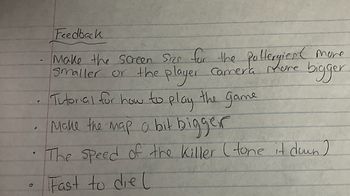 Feedback
· Make the screen size for the more
smaller or the player camera more bigger
· Tutorial for how to play the game
· Make the map a bit bigger
· The speed of the killer (tone it down)
· Fast to die(